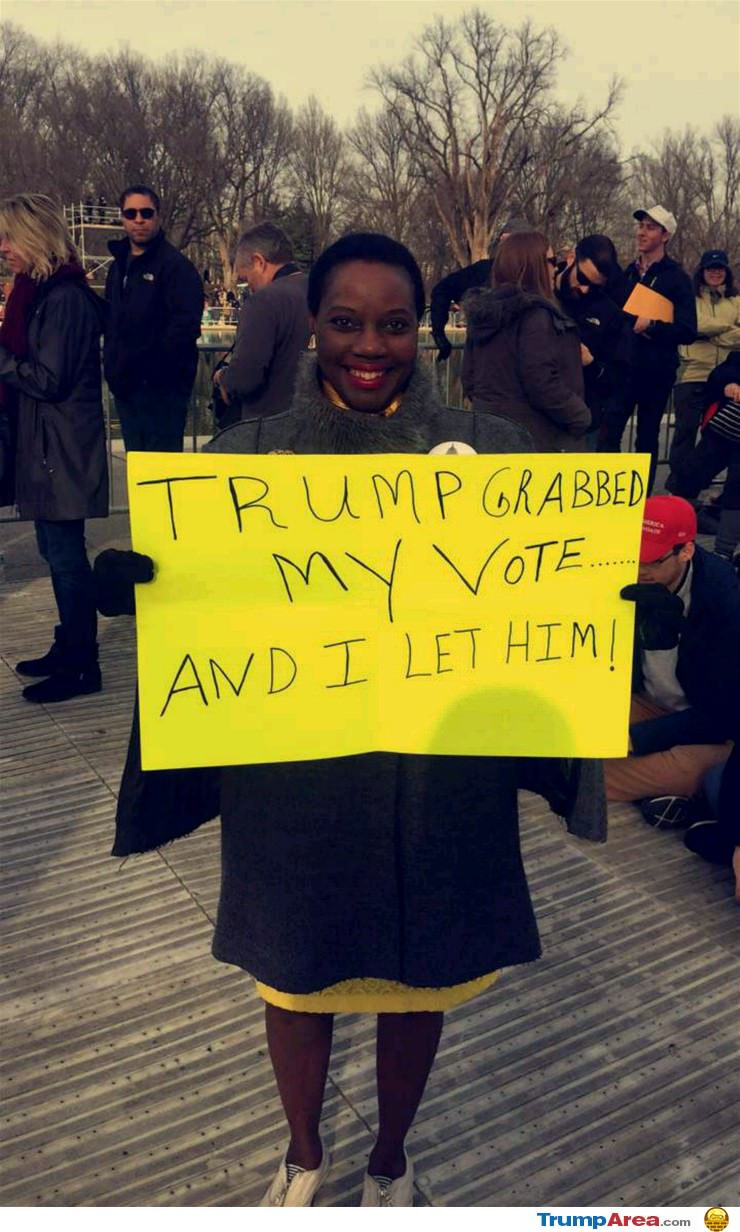 TRUMP GRABBED
MY VOTE.......
AND I LET HIM!
TrumpArea.com